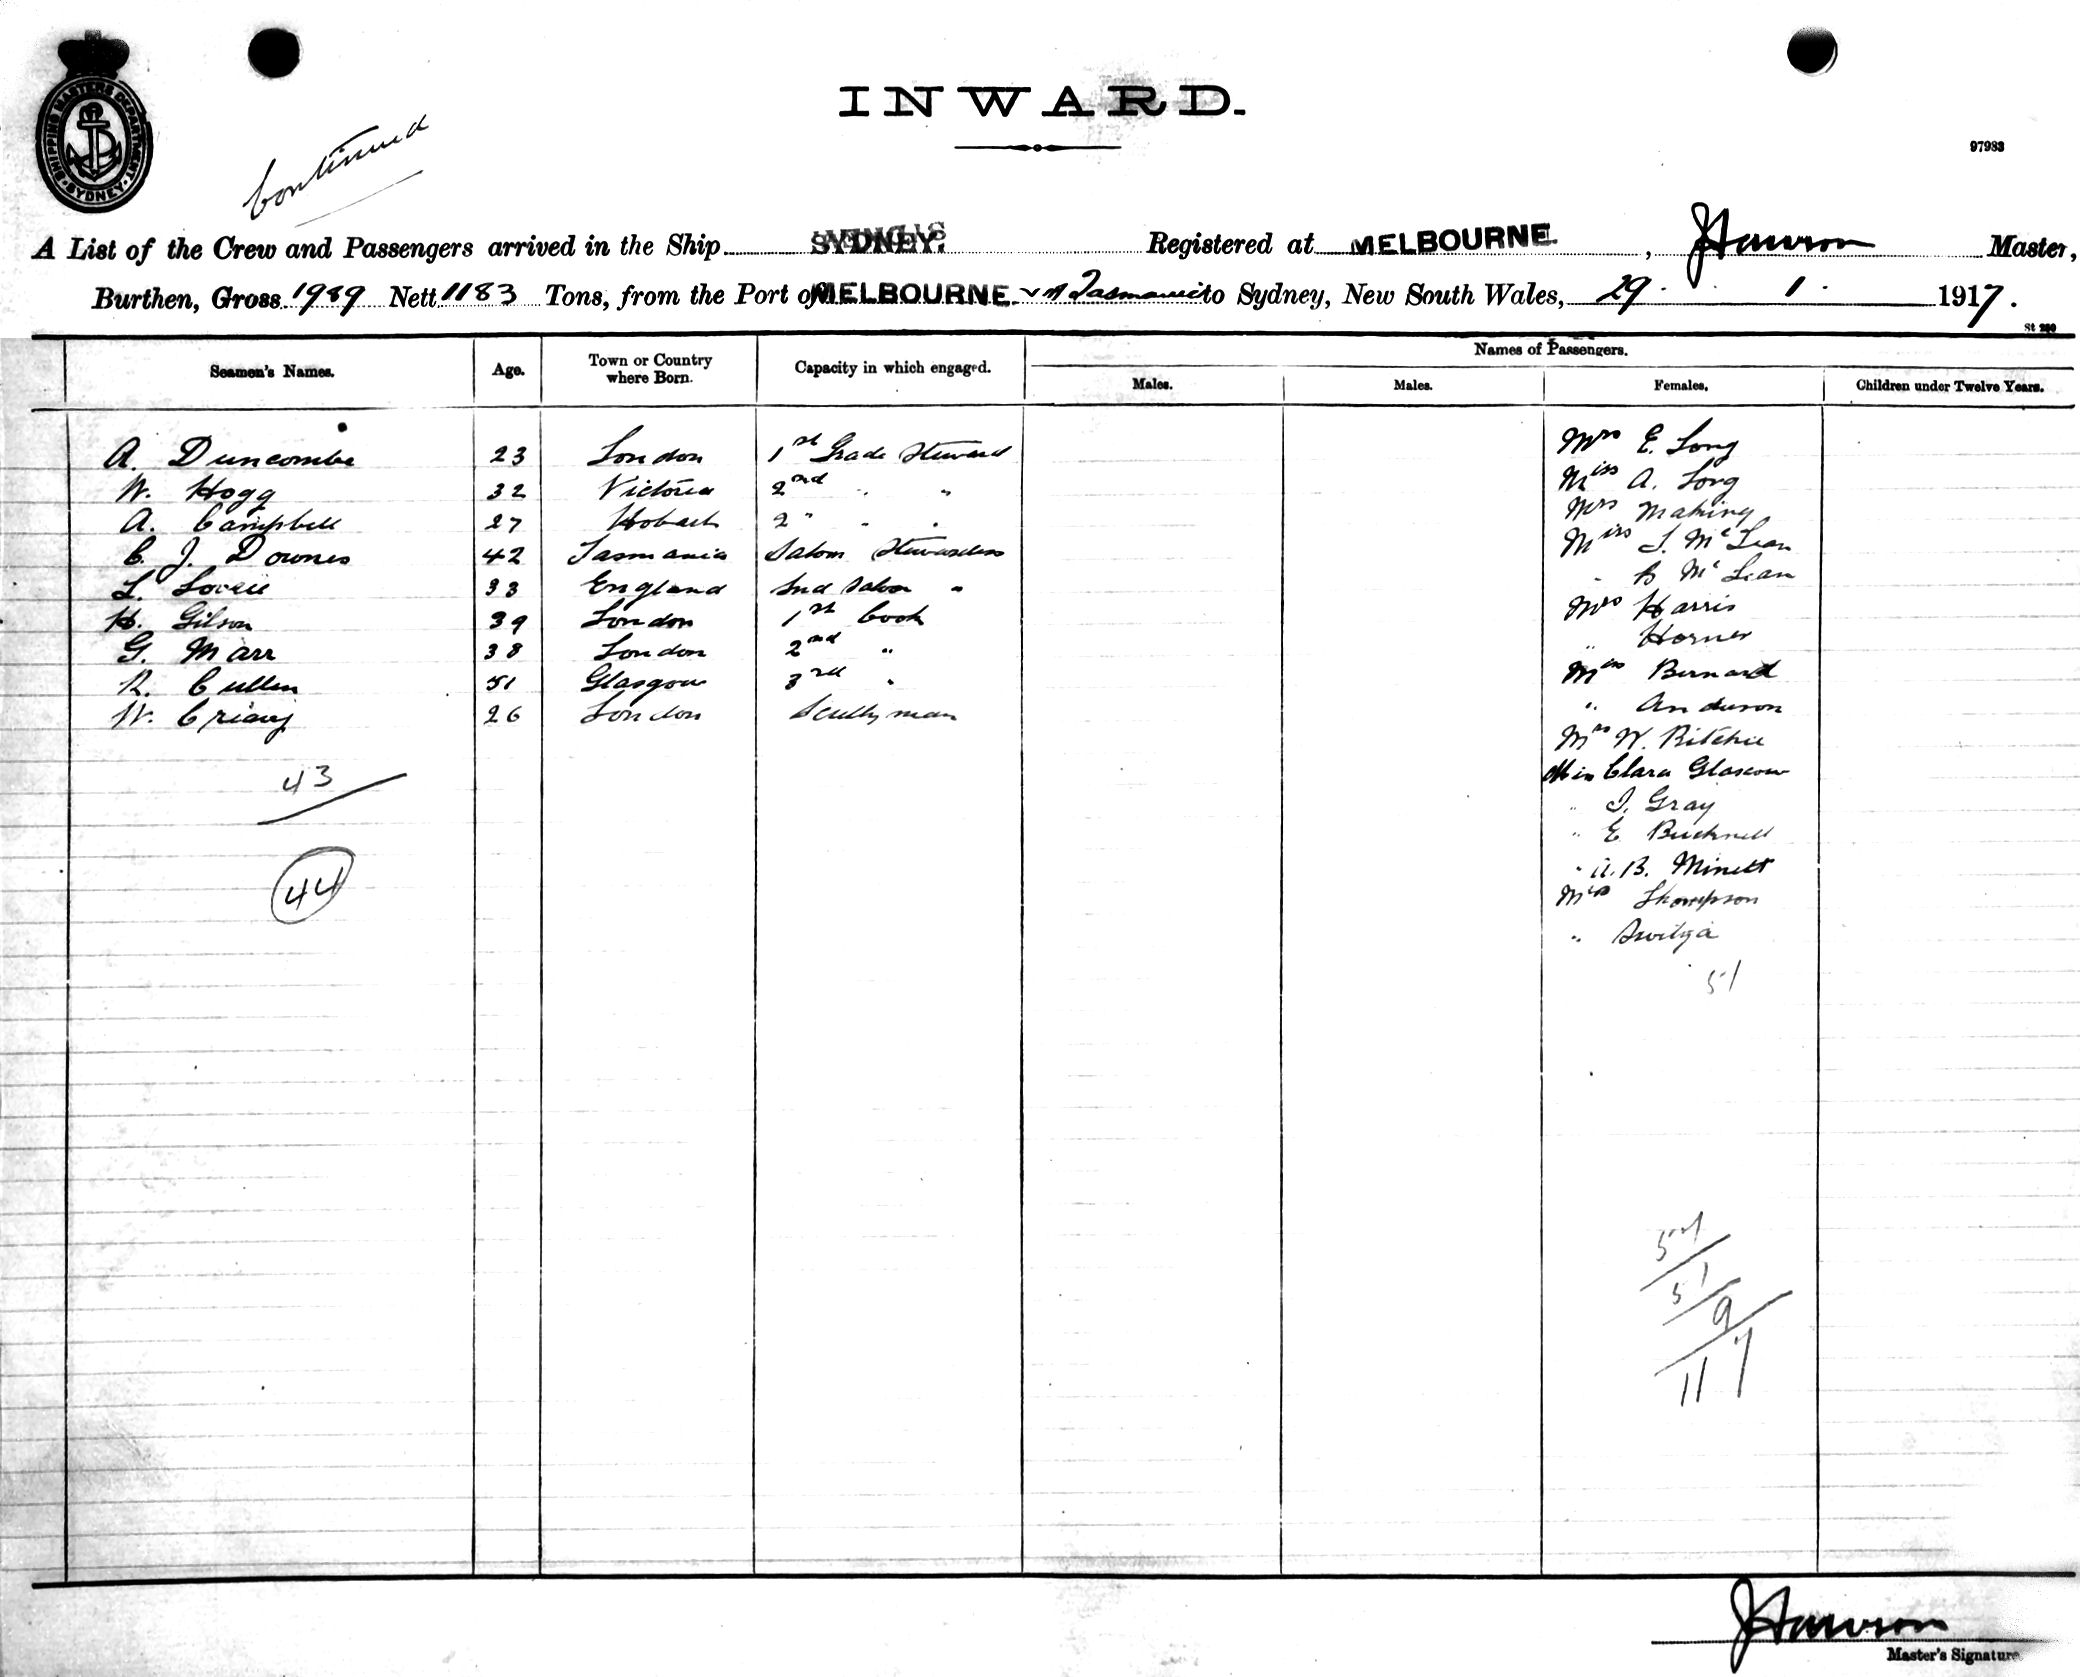 SHIPPING MASTERS DEPARTMENT SYDNEY
Continued
INWARD.
97983
A List of the Crew and Passengers arrived in the Ship SYDNEY. Registered at MELBOURNE. , Master,
Burthen, Gross 1989 Nett 1183 Tons, from the Port of MELBOURNE. Tasmania to Sydney, New South Wales, 29. 1. 1917.
St 250
Seamen's Names. Age. Town or Country where Born. Capacity in which engaged. Names of Passengers.
Males. Males. Females. Children under Twelve Years.
A. Duncombe 23 London 1st Grade Steward Mrs E. Long
W. Hogg 32 Victoria 2nd " " Miss A. Long
A. Campbell 27 Hobart 2" " " Mrs Making
C. J. Downes 42 Tasmania Saloon Stewardess Miss J. McLean
L. 33 England 2nd Saloon " " B McLean
H. Gilson 39 London 1st Cook Mrs Harris
G. Marr 38 London 2nd " " Horner
R. Cullen 51 Glasgow 3rd " Miss Bernard
W. 26 London Scullyman " Anderson
Mrs W. Ritchie
Miss Clara Glascow
43 " J. Gray
" E Bucknell
44 " A. B. Minett
Mrs Thompson
"
51
57
51
9
117
Master's Signature